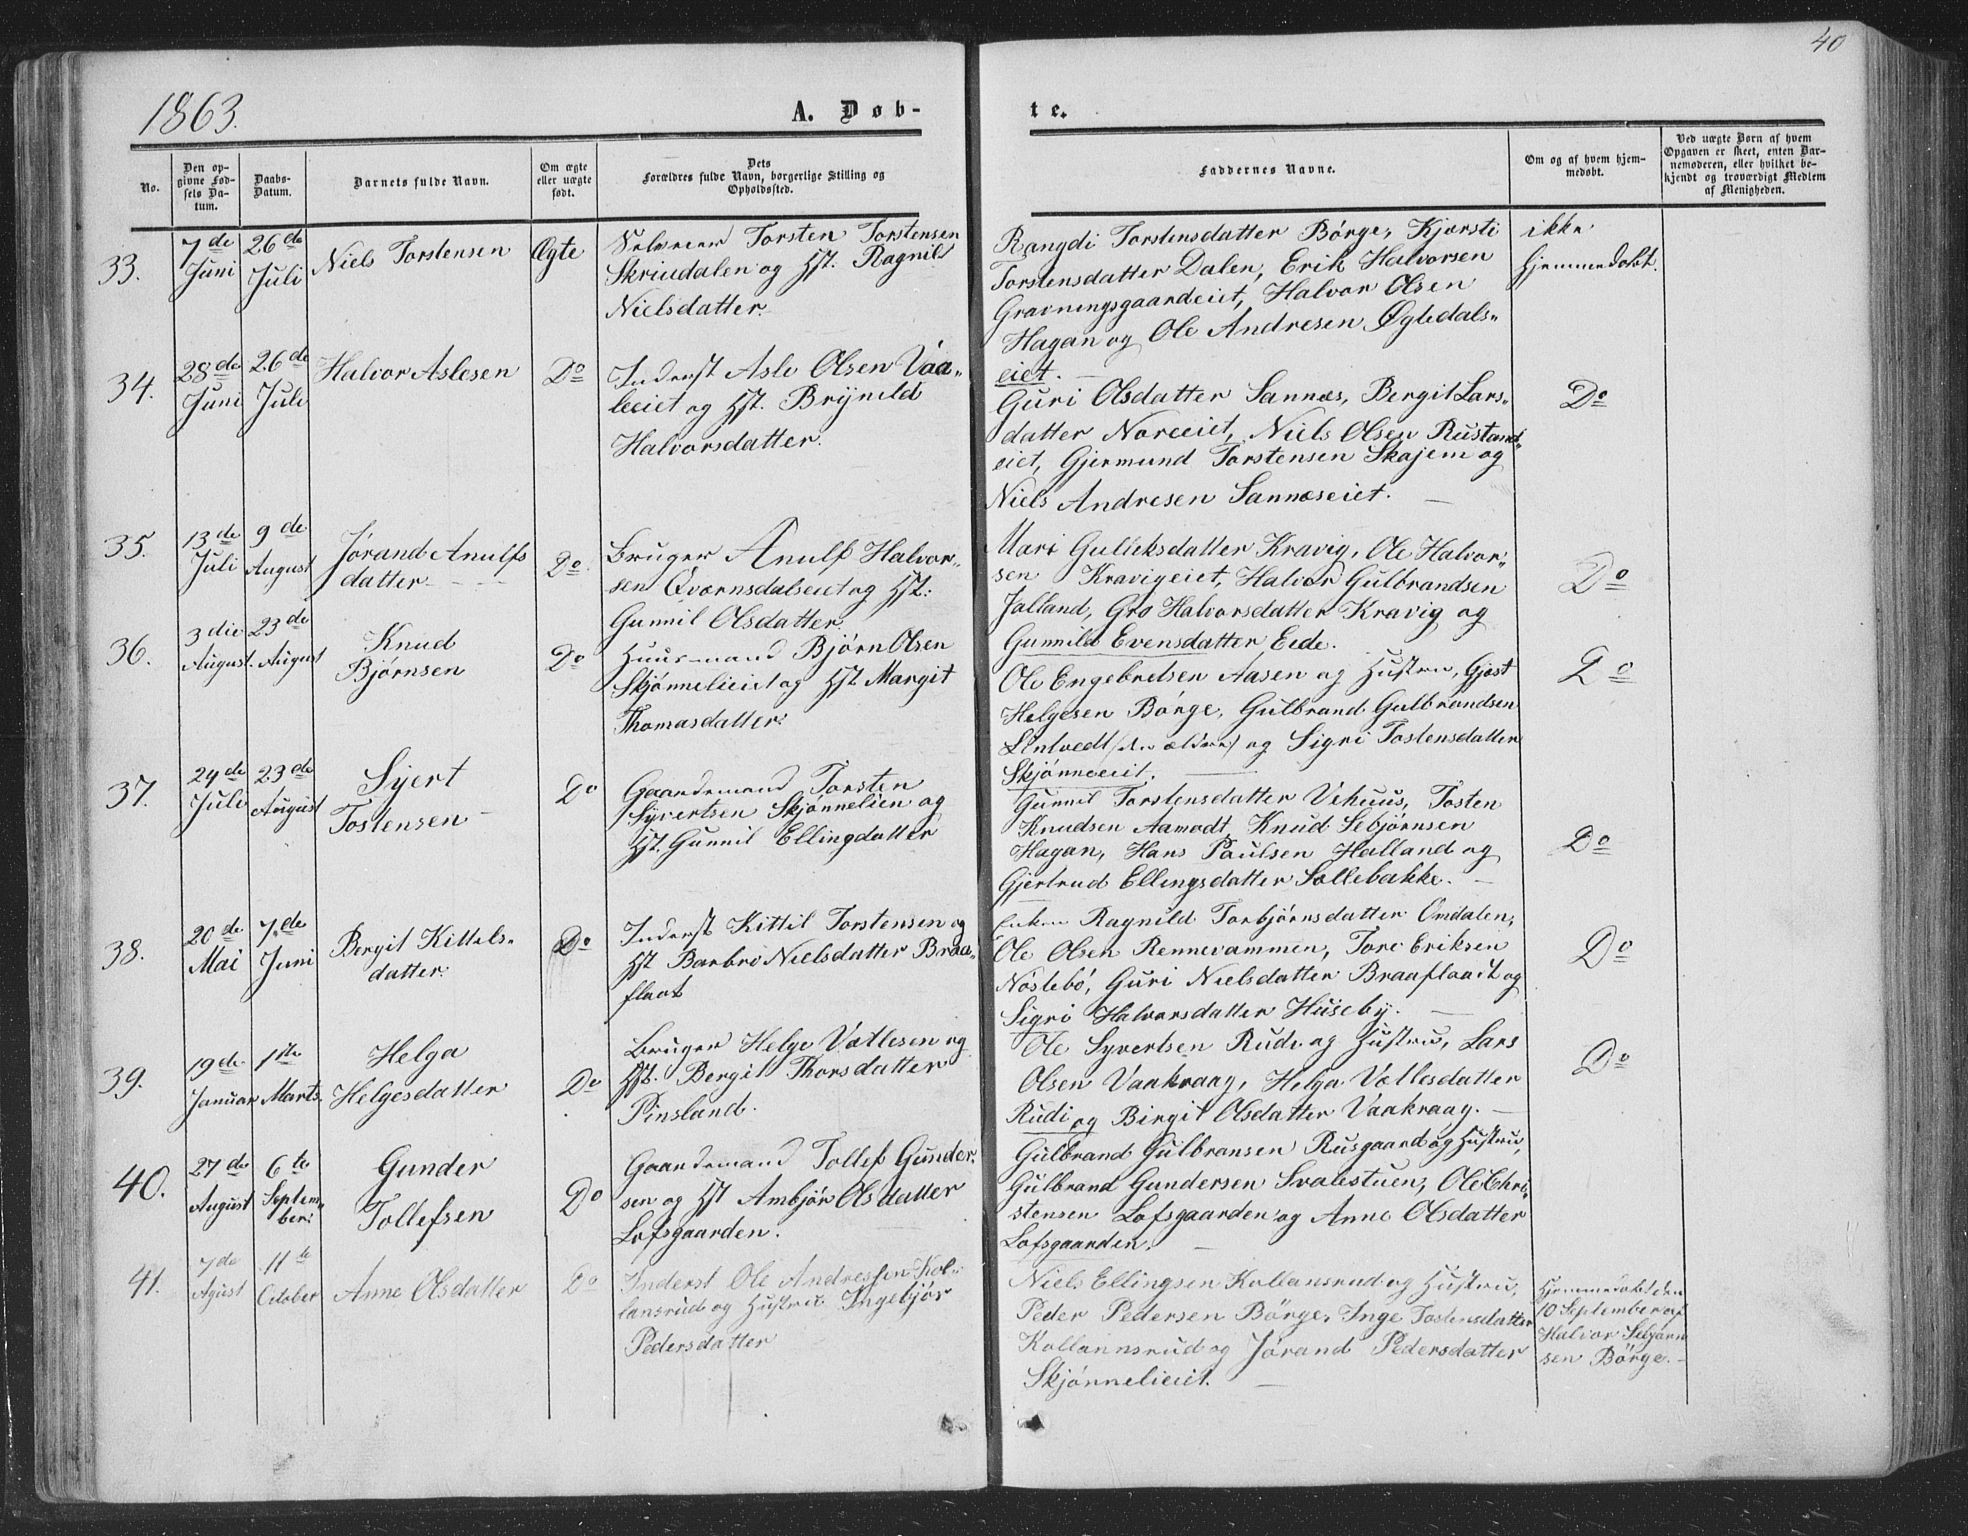 40
1863.
A. Døb-
te.
No.
Den op-
givne Fød-
sels Da-
tum.
Daabs-
Datum.
Barnets fulde Navn.
Om ægte
eller uægte
født.
Dets
Forældres fulde Navn, borgerlige Stilling og
Opholdssted.
Faddernes Navne.
Om og af hvem hjem-
medøbt.
Ved uægte Børn af hvem
Opgaven er skeet, enten Bar-
nemoderen, eller hvilket be-
kjendt og troværdigt Medlem
af Menigheden.
33.
7de
Juni
26de
Juli
Niels Torstensen
Ægte
Selveier Torsten Torstensen
Skriudalen og Hst. Ragnild
Nielsdatter.
Rangdi Torstensdatter Børge, Kjersti
Torstensdatter Dalen, Erik Halvorsen
Gravningsgaardeiet, Halvor Olsen
Hagan og Ole Andresen Øgledals-
eiet.
ikke
hjemmedøbt.
34.
28de
Juni
26de
Juli
Halvor Aslesen
Do
Inderst Asle Olsen Vaa-
leeiet og Hst. Brynild
Halvorsdatter.
Guri Olsdatter Sannæs, Bergit Lars-
datter Noreeiet, Niels Olsen Rustand-
eiet, Gjermund Torstensen Skajem og
Niels Andresen Sannæseiet.
Do
35.
13de
Juli
9de
August
Jørand Anulfs
datter
Do
Bruger Anulf Halvor-
sen Qvernsdalseiet og Hst:
Gunnil Olsdatter
Mari Gulliksdatter Kravig, Ole Halvor-
sen Kravigeiet, Halvor Gulbrandsen
Jalland, Gro Halvorsdatter Kravig og
Gunnild Evensdatter Eede.
Do
36.
3die
August.
23de
August
Knud
Bjørnsen
Do
Huusmand Bjørn Olsen
Skjønnelieiet og Hst. Margit
Thomasdatter:
Ole Engebretsen Aasen og Hustru, Gjest
Helgesen Børge, Gulbrand Gulbrandsen
Lintvedt (den ældre) og Sigri Tostensdatter
Skjønneeiet.
Do
37.
24de
Juli
23de
August
Syert
Tostensen
Do
Gaardemand Torsten
Syvertsen Skjønnelien og
Hst. Gunnil Ellingdatter
Gunnil Torstensdatter Vehuus, Tosten
Knudsen Aamodt, Knud Sebjørnsen
Hagan, Hans Paulsen Halland og
Gjertrud Ellingsdatter Sollebakke.
Do
38.
20de
Mai
7de
Juni
Bergit Kittels-
datter.
Do
Inderst Kittil Torstensen og
Hst Barbro Nielsdatter Braa-
flaat
Enken Ragnild Torbjørnsdatter Omdalen,
Ole Olsen Rennerammen, Tore Eriksen
Nøslebø, Guri Nielsdatter Braaflaadt og
Sigri Halvorsdatter Huseby.
Do
39.
19de
Januar
1ste
Marts.
Helga
Helgesdatter
Do
Bruger Helge Vetlesen og
Hst. Bergit Thorsdatter
Pinsland.
Ole Syvertsen Rudi og Hustru, Lars
Olsen Vaakraag, Helga Vetlesdatter
Rudi og Birgit Olsdatter Vaakraag.
Do
40.
27de
August
6te
Septem-
ber:
Gunder
Tollefsen
Do
Gaardemand Tollef Gunder-
sen og Hst Ambjør Olsdatter
Lofsgaarden.
Gulbrand Gulbransen Rusgaard og Hustru,
Gulbrand Gundersen Svalestuen, Ole Chri-
stensen Lofsgaarden og Anne Olsdatter
Lofsgaarden.
41.
7de
Agust
11te
October
Anne Olsdatter
Do
Inderst Ole Andressen Kol-
lansrud og Hustru Ingebjør
Pedersdatter
Niels Ellingsen Kollansrud og Hustru,
Peder Pedersen Børge, Inge Tostensdatter
Kollannsrud og Jørand Pedersdatter
Skjønnelieiet.
Hjemmedøbt den
10 September af
Halvor Sebjørn
sen Børge.